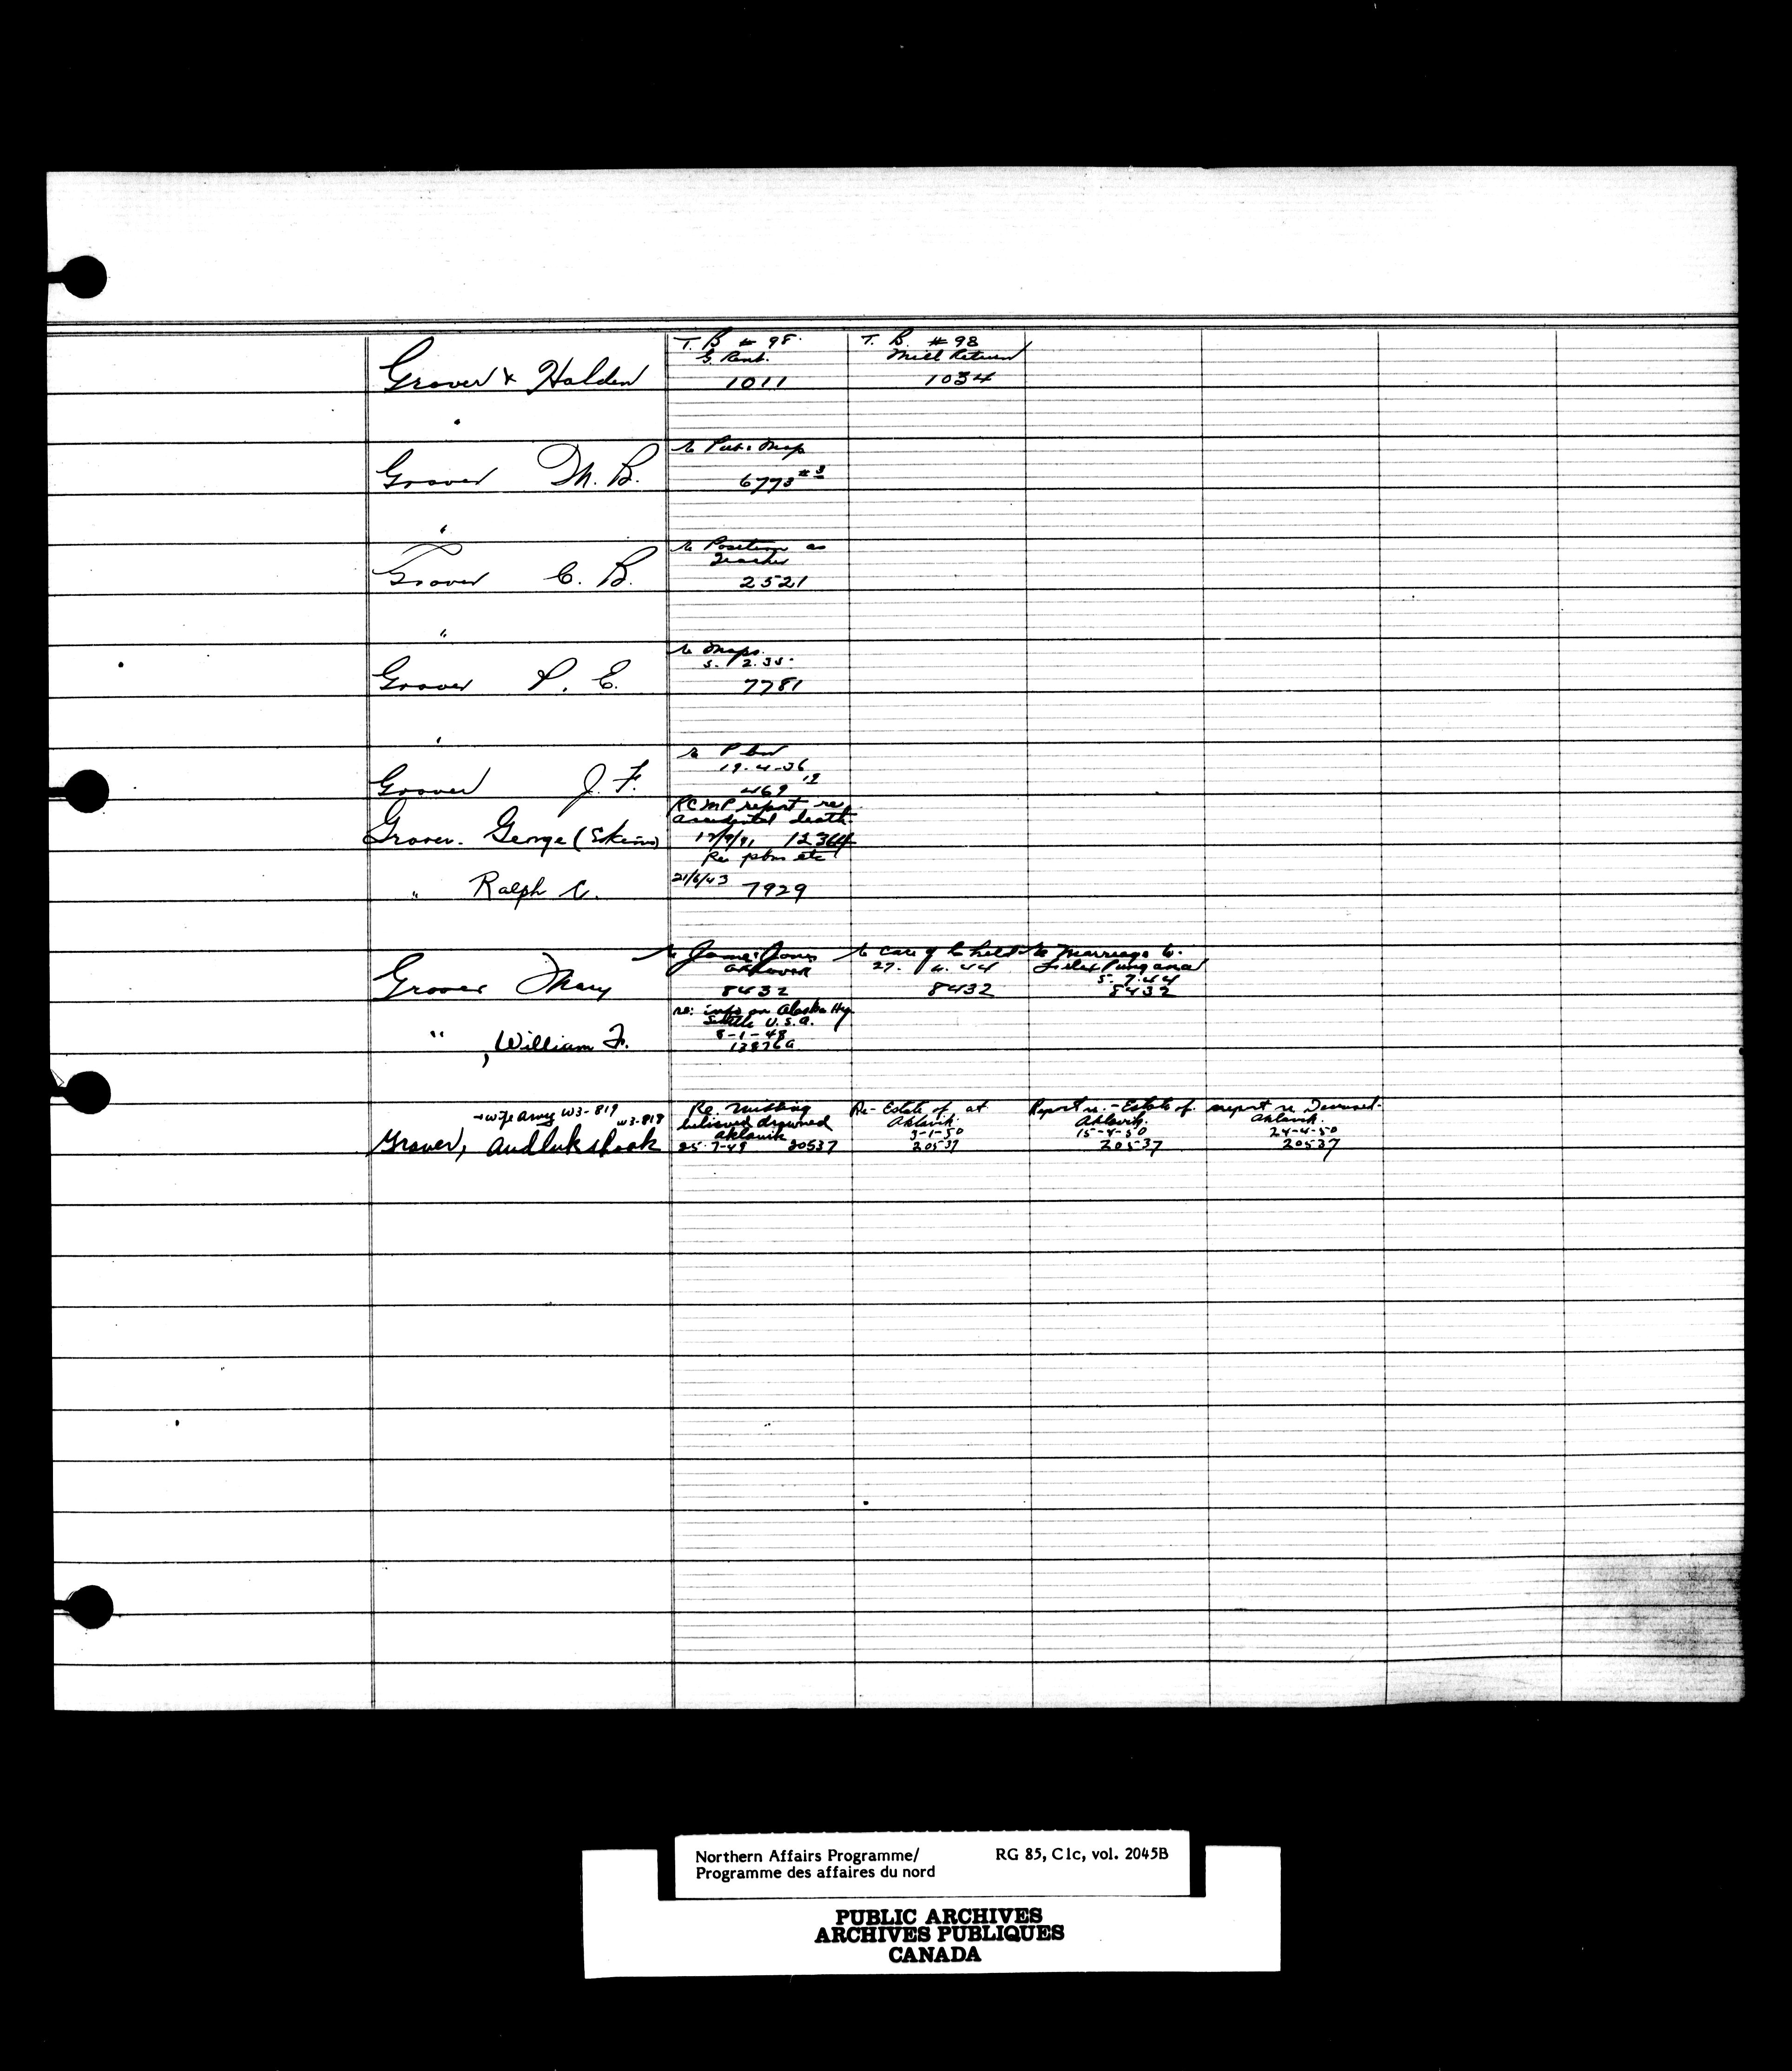 T. B # 98. T. B. # 98
G. Rent. Mill Return
Grover & Halden 1011 1034
re Pub. Map
Grover M. B. 6773 #3
"
re Position as
Teacher
Grover C. B. 2521
"
re Maps.
5. 2. 35.
Grover P. E. 7781
"
re
19-4-36
Grover J. F. 469 12
RCMP report re
accidental death
Grover. George (Eskimo) 12364
Re pbns etc
" Ralph C. 21/6/43 7929
re James Jones re Care of Child re Marriage to
27. 4. 44 Felix Pungana
5. 7. 44
Grover Mary 8432 8432 8432
re: info on Alaska Hy.
Seattle U.S.A.
8-1-48
" , William F. 13876A
wife Amy W3-819 W3-818
Re missing Re- Estate of at Report re. - Estate of. report re Deceased.
believed drowned Aklavik. Aklavik. Aklavik.
Aklavik 3-1-50 15-4-50 24-4-50
Grover, Audlukshook 25-7-49 20537 20537 20537 20537
Northern Affairs Programme/ RG 85, C1c, vol. 2045B
Programme des affaires du nord
PUBLIC ARCHIVES
ARCHIVES PUBLIQUES
CANADA